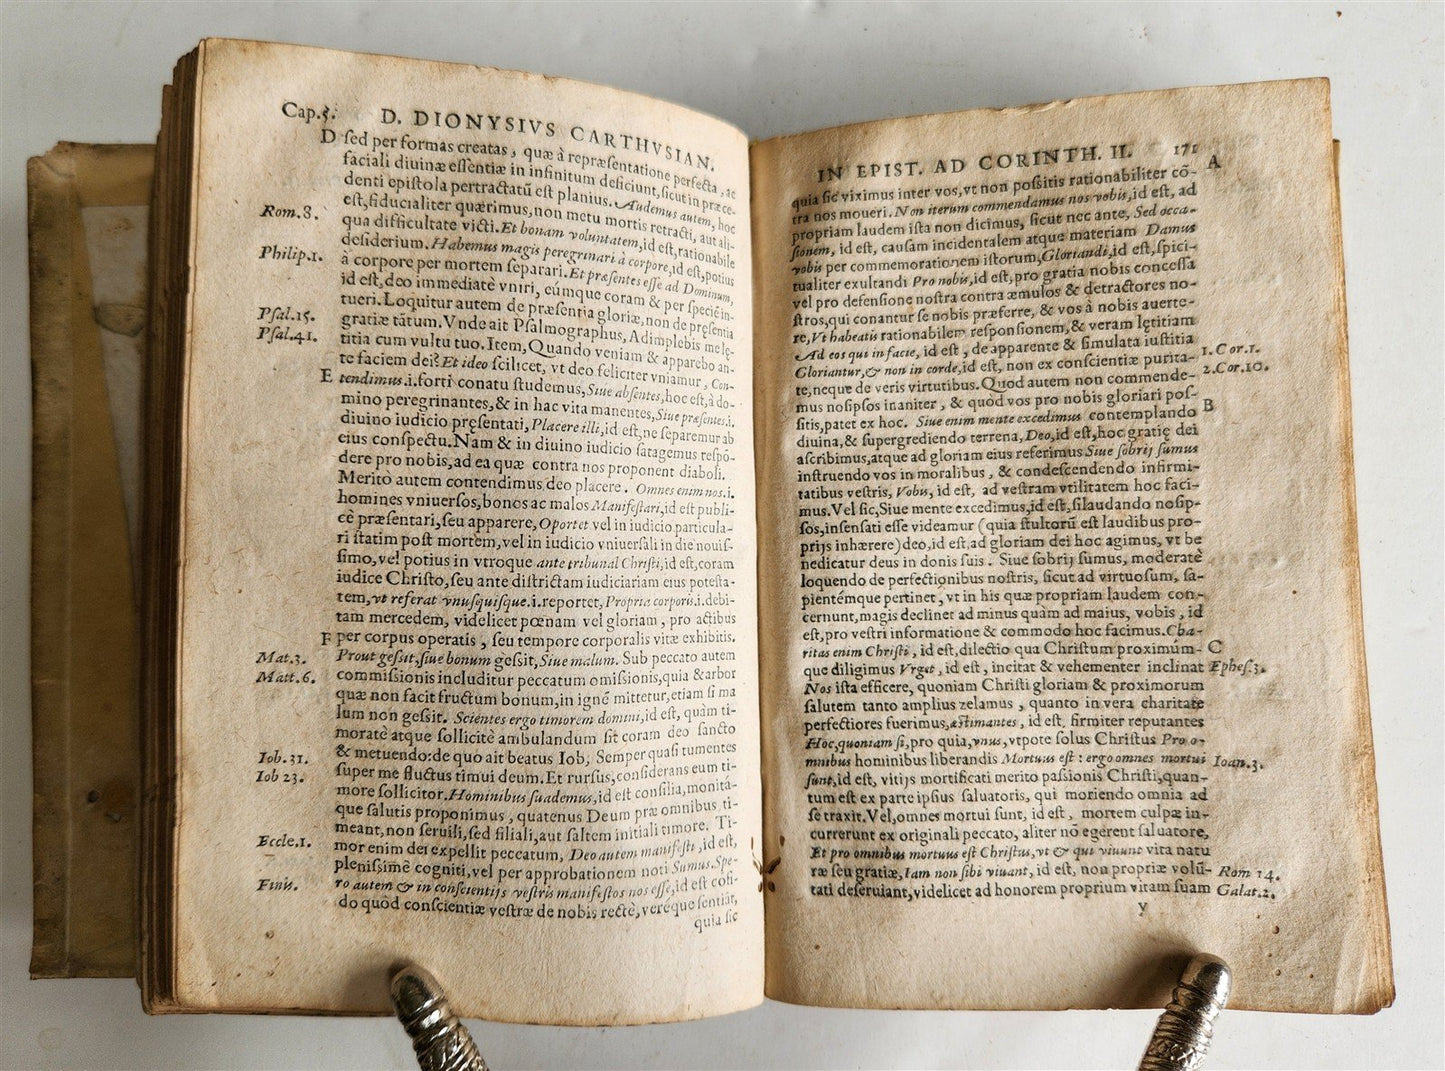 Cap.5. D. DIONYSIVS CARTHVSIAN.
D ſed per formas creatas, quæ à repræſentatione perfecta, ac
faciali diuinæ eſſentiæ in infinitum deficiunt, ſicut in præce-
denti epiſtola pertractatũ eſt planius. Audemus autem, hoc
Rom.8. eſt, fiducialiter quærimus, non metu mortis retracti, aut ali-
qua difficultate victi. Et bonam voluntatem, id eſt, rationabile
Philip.1. deſiderium. Habemus magis peregrinari à corpore, id eſt, potius
à corpore per mortem ſeparari. Et præſentes eſſe ad Dominum,
id eſt, deo immediatè vniri, eúmque coram & per ſpeciẽ in-
Pſal.15. tueri. Loquitur autem de præſentia gloriæ, non de pręſentia
Pſal.41. gratiæ tãtum. Vnde ait Pſalmographus, Adimplebis me lę-
titia cum vultu tuo. Item, Quando veniam & apparebo an-
te faciem dei? Et ideo ſcilicet, vt deo feliciter vniamur, Con-
E tendimus .i. forti conatu ſtudemus, Siue abſentes, hoc eſt, à do-
mino peregrinantes, & in hac vita manentes, Siue præſentes .i.
diuino iudicio pręſentati, Placere illi, id eſt, ne ſeparemur ab
eius conſpectu. Nam & in diuino iudicio ſatagemus reſpõ-
dere pro nobis, ad ea quæ contra nos proponent diaboli.
Meritò autem contendimus deo placere. Omnes enim nos .i.
homines vniuerſos, bonos ac malos Manifeſtari, id eſt publi-
cè præſentari, ſeu apparere, Oportet vel in iudicio particula-
ri ſtatim poſt mortem, vel in iudicio vniuerſali in die nouiſ-
ſimo, vel potius in vtroque ante tribunal Chriſti, id eſt, coram
iudice Chriſto, ſeu ante diſtrictam iudiciariam eius poteſta-
tem, vt referat vnuſquiſque .i. reportet, Propria corporis .i. debi-
tam mercedem, videlicet pœnam vel gloriam, pro actibus
F per corpus operatis, ſeu tempore corporalis vitæ exhibitis.
Mat.3. Prout geſsit, ſiue bonum geſsit, Siue malum. Sub peccato autem
Matt.6. commiſsionis includitur peccatum omiſsionis, quia & arbor
quæ non facit fructum bonum, in ignẽ mittetur, etiam ſi ma
lum non geſsit. Scientes ergo timorem domini, id eſt, quàm ti-
moratè atque ſollicitè ambulandum ſit coram deo ſancto
Iob.31. & metuendo: de quo ait beatus Iob, Semper quaſi tumentes
Iob 23. ſuper me fluctus timui deum. Et rurſus, conſiderans eum ti-
more ſollicitor. Hominibus ſuademus, id eſt conſilia, monitá-
que ſalutis proponimus, quatenus Deum præ omnibus ti-
meant, non ſeruili, ſed filiali, aut ſaltem initiali timore. Ti-
Eccle.1. mor enim dei expellit peccatum, Deo autem manifeſti, id eſt,
pleniſsimè cogniti, vel per approbationem noti Sumus. Spe-
Finis. ro autem & in conſcientijs veſtris manifeſtos nos eſſe, id eſt cõfi-
do quòd conſcientiæ veſtræ de nobis rectè, veréque ſentiãt,
quia ſic
IN EPIST. AD CORINTH. II. 171
quia ſic viximus inter vos, vt non poſsitis rationabiliter cõ- A
tra nos moueri. Non iterum commendamus nos vobis, id eſt, ad
propriam laudem iſta non dicimus, ſicut nec ante, Sed occa-
ſionem, id eſt, cauſam incidentalem atque materiam Damus
vobis per commemorationem iſtorum, Gloriandi, id eſt, ſpici-
tualiter exultandi Pro nobis, id eſt, pro gratia nobis conceſſa
vel pro defenſione noſtra contra æmulos & detractores no-
ſtros, qui conantur ſe nobis præferre, & vos à nobis auerte-
re, Vt habeatis rationabilem reſponſionem, & veram lętitiam
Ad eos qui in facie, id eſt, de apparente & ſimulata iuſtitia 1.Cor.1.
Gloriantur, & non in corde, id eſt, non ex conſcientiæ purita- 2.Cor.10.
te, neque de veris virtutibus. Quòd autem non commende-
mus noſipſos inaniter, & quòd vos pro nobis gloriari poſ- B
ſitis, patet ex hoc. Siue enim mente excedimus contemplando
diuina, & ſupergrediendo terrena, Deo, id eſt, hoc gratię dei
aſcribimus, atque ad gloriam eius referimus Siue ſobrij ſumus
inſtruendo vos in moralibus, & condeſcendendo infirmi-
tatibus veſtris, Vobis, id eſt, ad veſtram vtilitatem hoc faci-
mus. Vel ſic, Siue mente excedimus, id eſt, ſi laudando noſip-
ſos, inſenſati eſſe videamur (quia ſtultorũ eſt laudibus pro-
prijs inhærere) deo, id eſt, ad gloriam dei hoc agimus, vt be
nedicatur deus in donis ſuis. Siue ſobrij ſumus, moderatè
loquendo de perfectionibus noſtris, ſicut ad virtuoſum, ſa-
pientémque pertinet, vt in his quæ propriam laudem con-
cernunt, magis declinet ad minus quàm ad maius, vobis, id
eſt, pro veſtri informatione & commodo hoc facimus. Cha-
ritas enim Chriſti, id eſt, dilectio qua Chriſtum proximúm- C
que diligimus Vrget, id eſt, incitat & vehementer inclinat Epheſ.3.
Nos iſta efficere, quoniam Chriſti gloriam & proximorum
ſalutem tanto amplius zelamus, quanto in vera charitate
perfectiores fuerimus, æſtimantes, id eſt, firmiter reputantes
Hoc, quoniam ſi, pro quia, vnus, vtpote ſolus Chriſtus Pro o-
mnibus hominibus liberandis Mortuus eſt: ergo omnes mortui Ioan.3.
ſunt, id eſt, vitijs mortificati merito paſsionis Chriſti, quan-
tum eſt ex parte ipſius ſaluatoris, qui moriendo omnia ad
ſe traxit. Vel, omnes mortui ſunt, id eſt, mortem culpæ in-
currerunt ex originali peccato, aliter nõ egerent ſaluatore,
Et pro omnibus mortuus eſt Chriſtus, vt & qui viuunt vita natu
ræ ſeu gratiæ, Iam non ſibi viuant, id eſt, non propriæ volũ- Rom 14.
tati deſeruiant, videlicet ad honorem proprium vitam ſuam Galat.2.
y